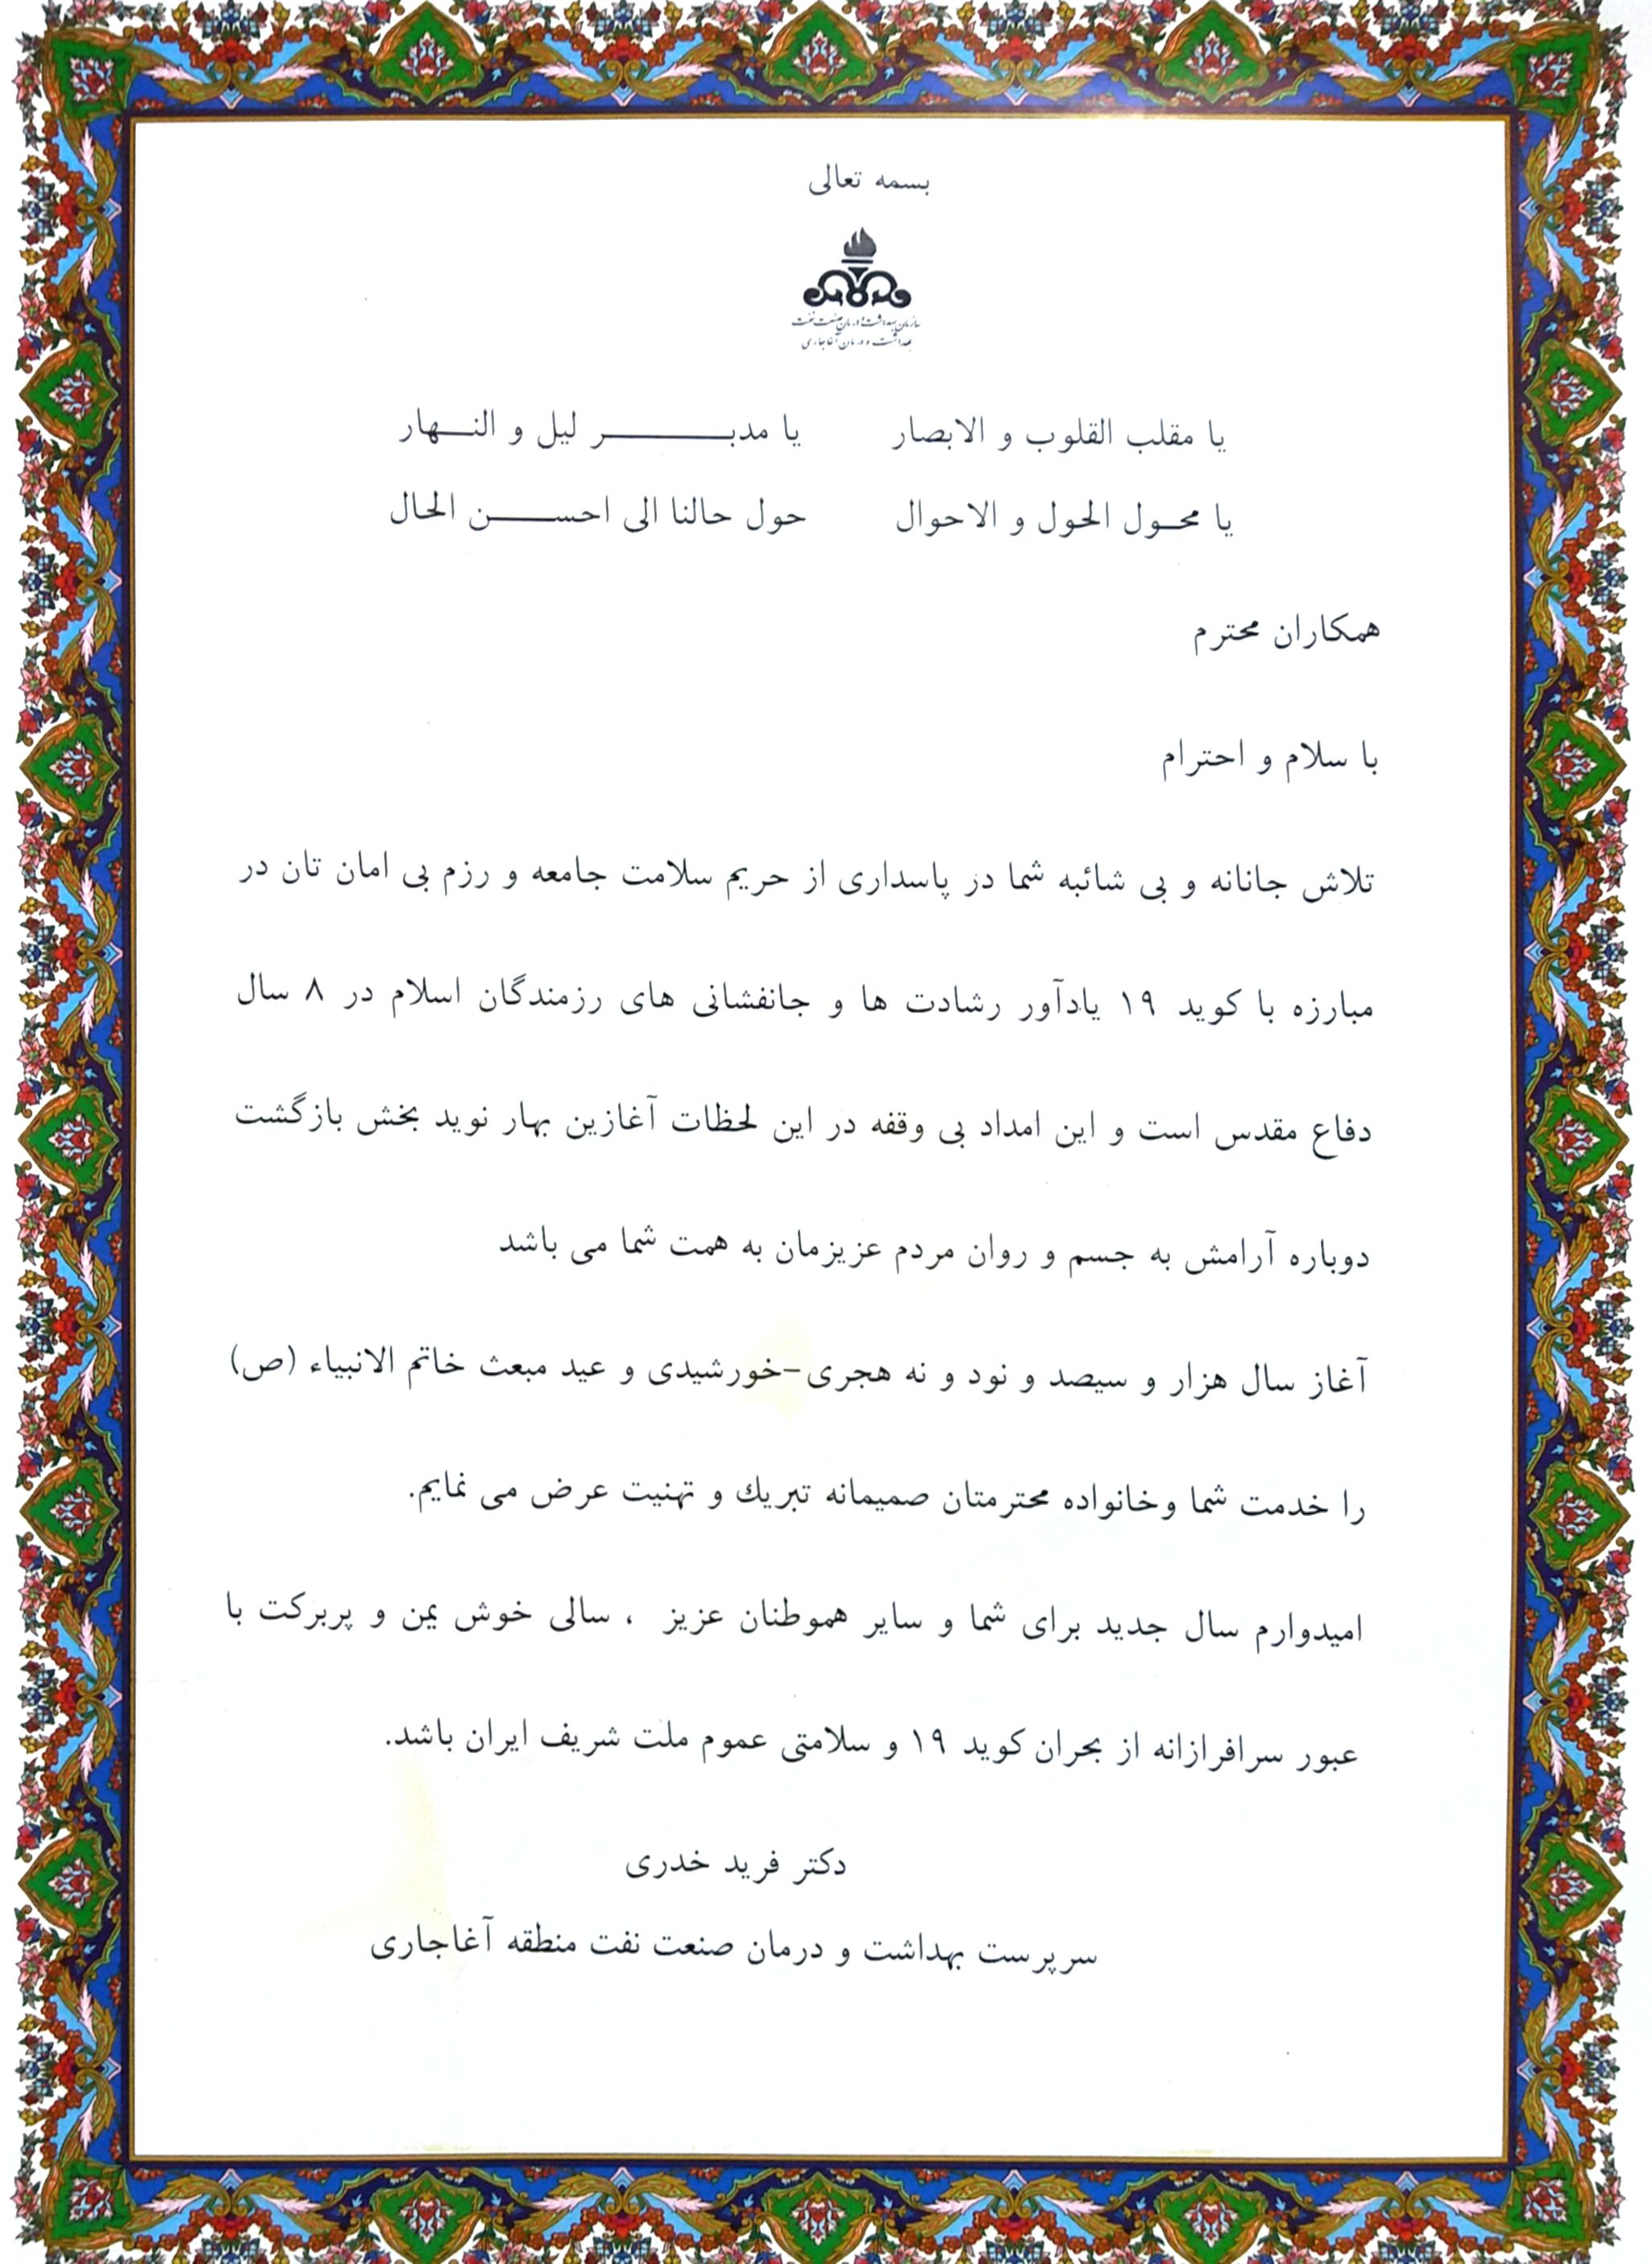 بسمه تعالی
سازمان بهداشت و درمان صنعت نفت
بهداشت و درمان آغاجاری
یا مقلب القلوب و الابصار یا مدبـــــر لیل و النـــهار
یا محـول الحول و الاحوال حول حالنا الی احســـن الحال
همکاران محترم
با سلام و احترام
تلاش جانانه و بی شائبه شما در پاسداری از حریم سلامت جامعه و رزم بی امان تان در
مبارزه با کوید ۱۹ یادآور رشادت ها و جانفشانی های رزمندگان اسلام در ۸ سال
دفاع مقدس است و این امداد بی وقفه در این لحظات آغازین بهار نوید بخش بازگشت
دوباره آرامش به جسم و روان مردم عزیزمان به همت شما می باشد
آغاز سال هزار و سیصد و نود و نه هجری-خورشیدی و عید مبعث خاتم الانبیاء (ص)
را خدمت شما وخانواده محترمتان صمیمانه تبریك و تهنیت عرض می نمایم.
امیدوارم سال جدید برای شما و سایر هموطنان عزیز ، سالی خوش یمن و پربرکت با
عبور سرافرازانه از بحران کوید ۱۹ و سلامتی عموم ملت شریف ایران باشد.
دکتر فرید خدری
سرپرست بهداشت و درمان صنعت نفت منطقه آغاجاری